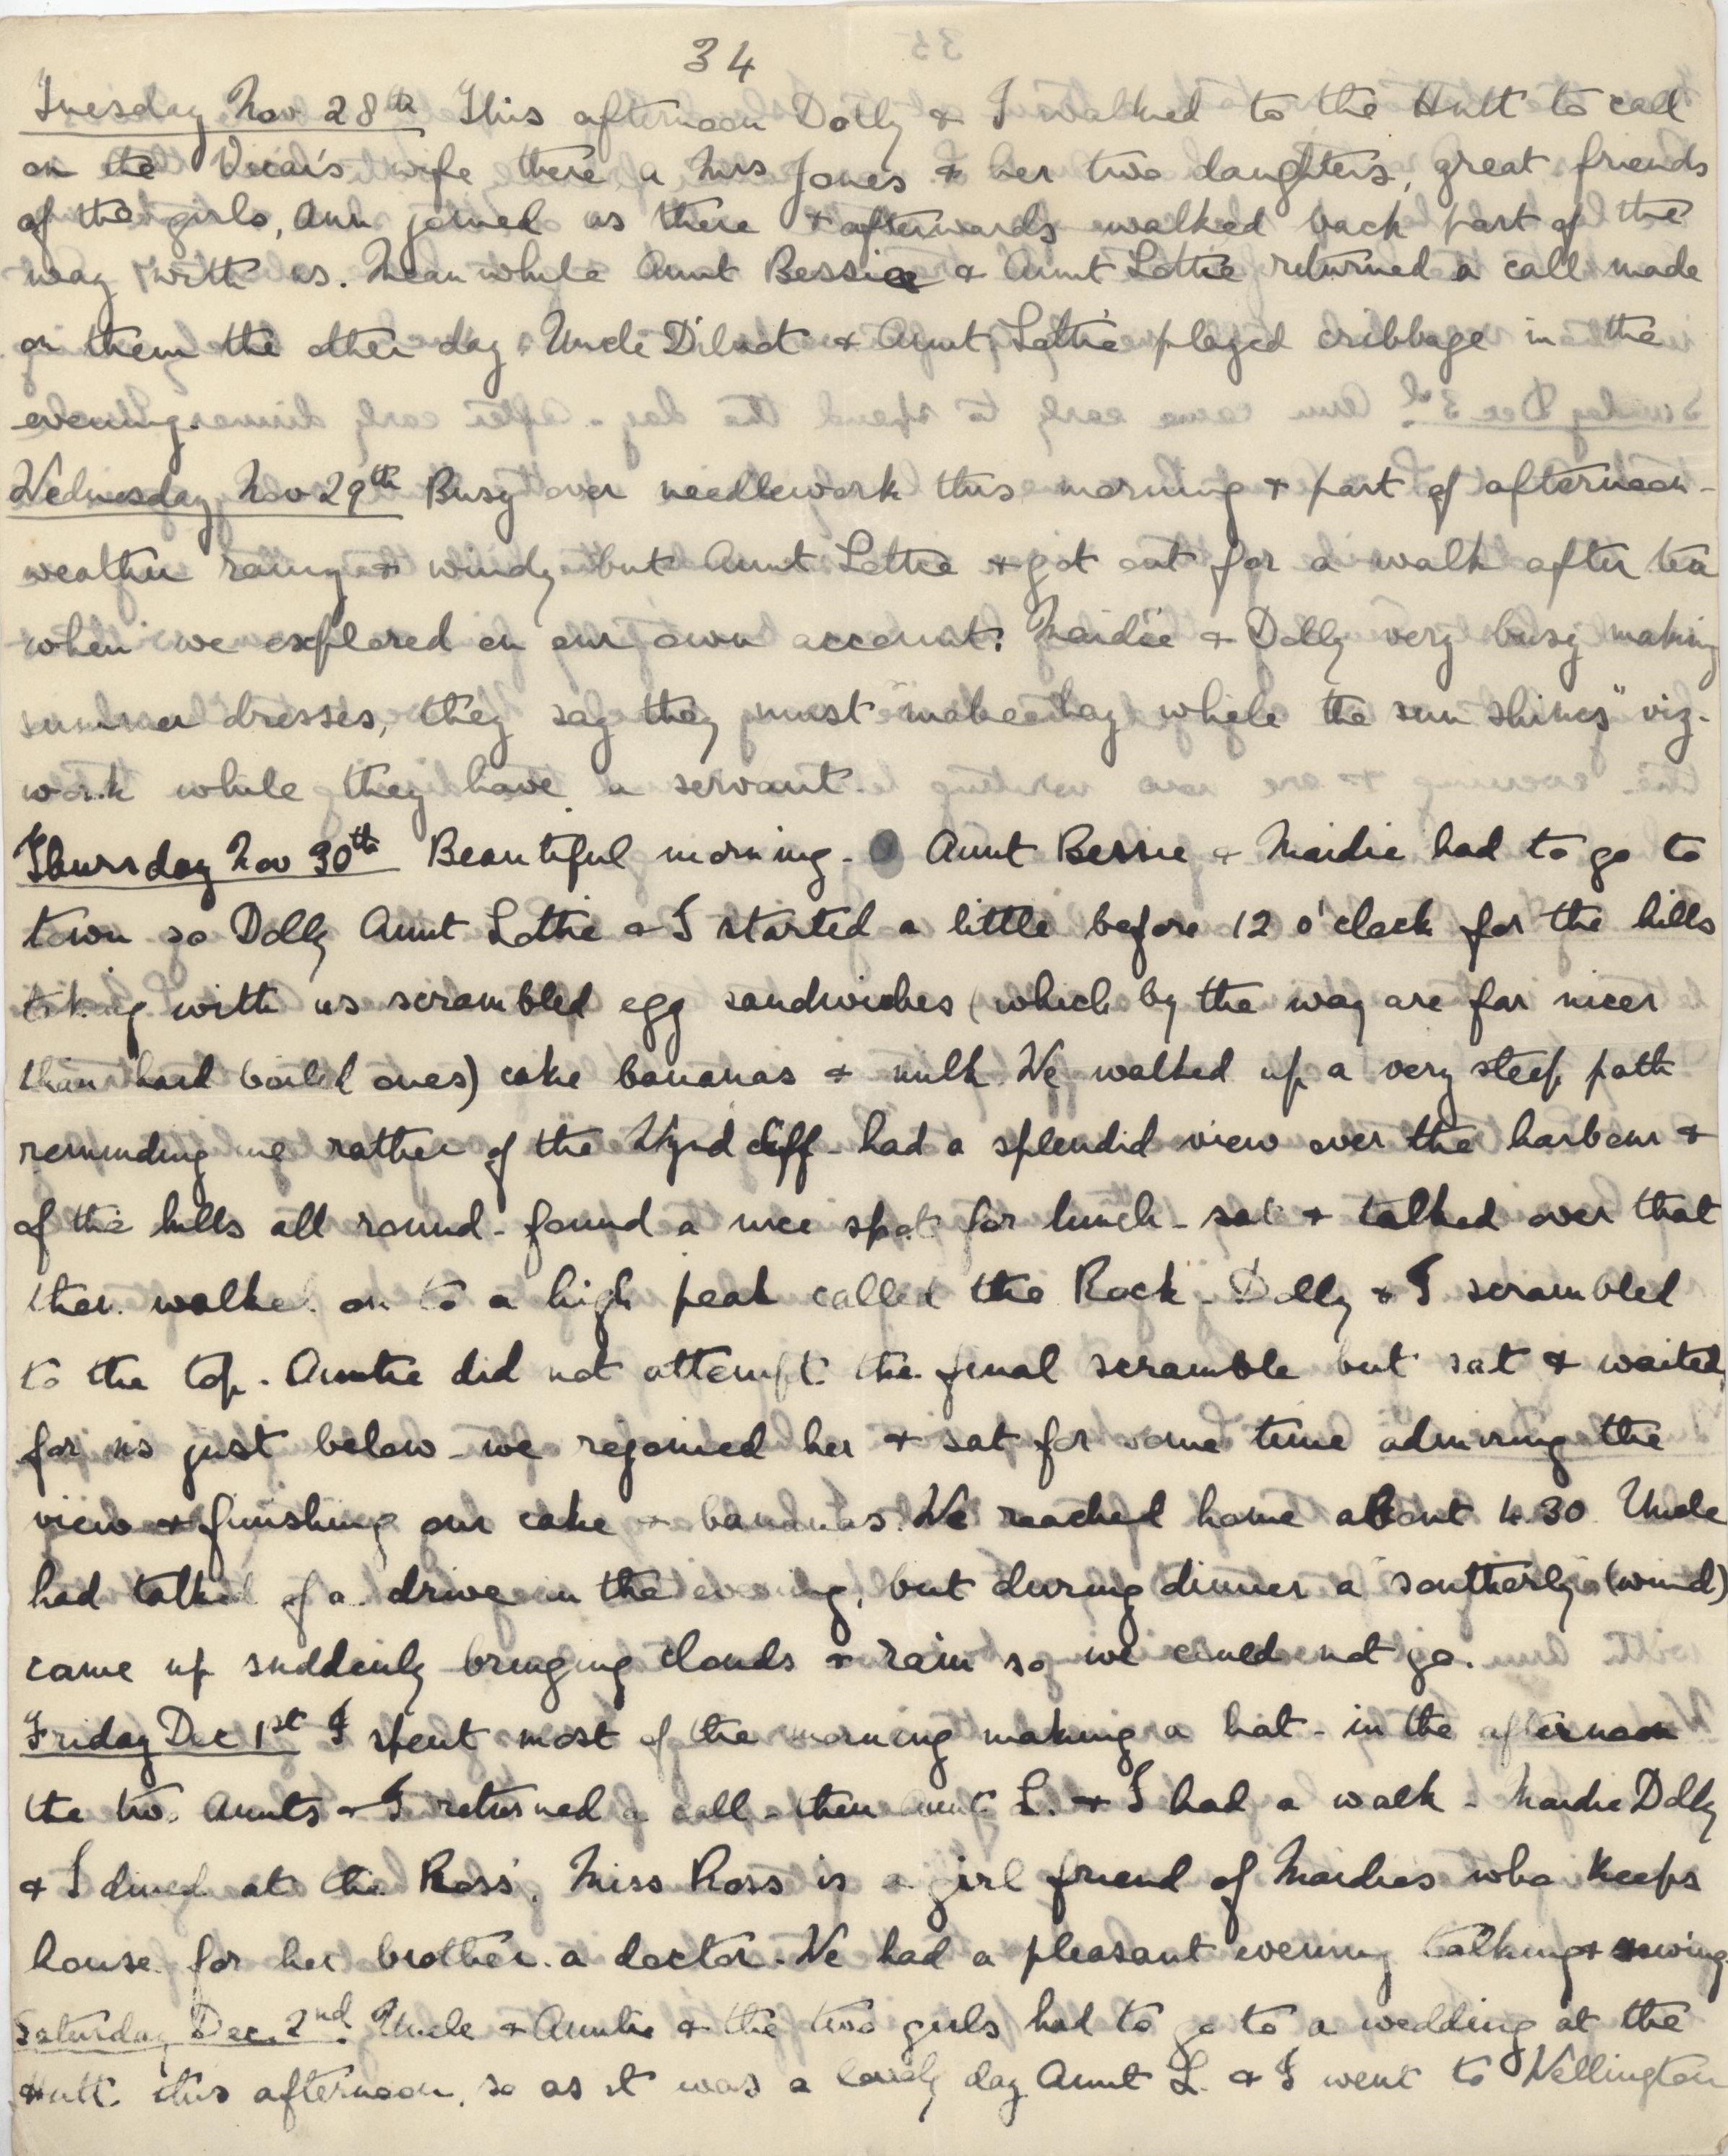 34
Tuesday Nov 28th This afternoon Dolly & I walked to the Hutt to call
on the Vicar's wife there a Mrs Jones & her two daughters, great friends
of the girls, Ann joined us there & afterwards walked back part of the
way with us. Mean while Aunt Bessie & Aunt Lottie returned a call made
on them the other day. Uncle & Aunt Lottie played cribbage in the
evening.
Wednesday Nov 29th Busy over needlework this morning & part of afternoon -
weather rainy & windy but Aunt Lottie & got out for a walk after tea
when we explored on our own account. Maidie & Dolly very busy making
summer dresses, they say they must "make hay while the sun shines" viz.
work while they have a servant.
Thursday Nov 30th Beautiful morning. Aunt Bessie & Maidie had to go to
town so Dolly Aunt Lottie & I started a little before 12 o'clock for the hills
taking with us scrambled egg sandwiches (which by the way are far nicer
than hard boiled ones) cake bananas & milk. We walked up a very steep path
reminding me rather of the Wynd cliff - had a splendid view over the harbour &
of the hills all round - found a nice spot for lunch - sat & talked over that
then walked on to a high peak called the Rock - Dolly & I scrambled
to the top. Auntie did not attempt the final scramble but sat & waited
for us just below - we rejoined her & sat for some time admiring the
view & finishing our cake & bananas. We reached home about 4.30. Uncle
had talked of a drive in the evening, but during dinner a "southerly" (wind)
came up suddenly bringing clouds & rain so we could not go.
Friday Dec 1st I spent most of the morning making a hat - in the afternoon
the two Aunts & I returned a call - then Aunt L. & I had a walk - Maidie Dolly
& I dined at the Ross'. Miss Ross is a girl friend of Maidies who keeps
house for her brother a doctor. We had a pleasant evening talking & sewing.
Saturday Dec. 2nd. Uncle & Auntie & the two girls had to go to a wedding at the
Hutt this afternoon, so as it was a lovely day Aunt L. & I went to Wellington